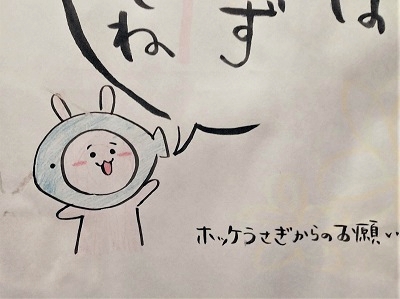 は
ず
ね
ホッケうさぎからのお願い